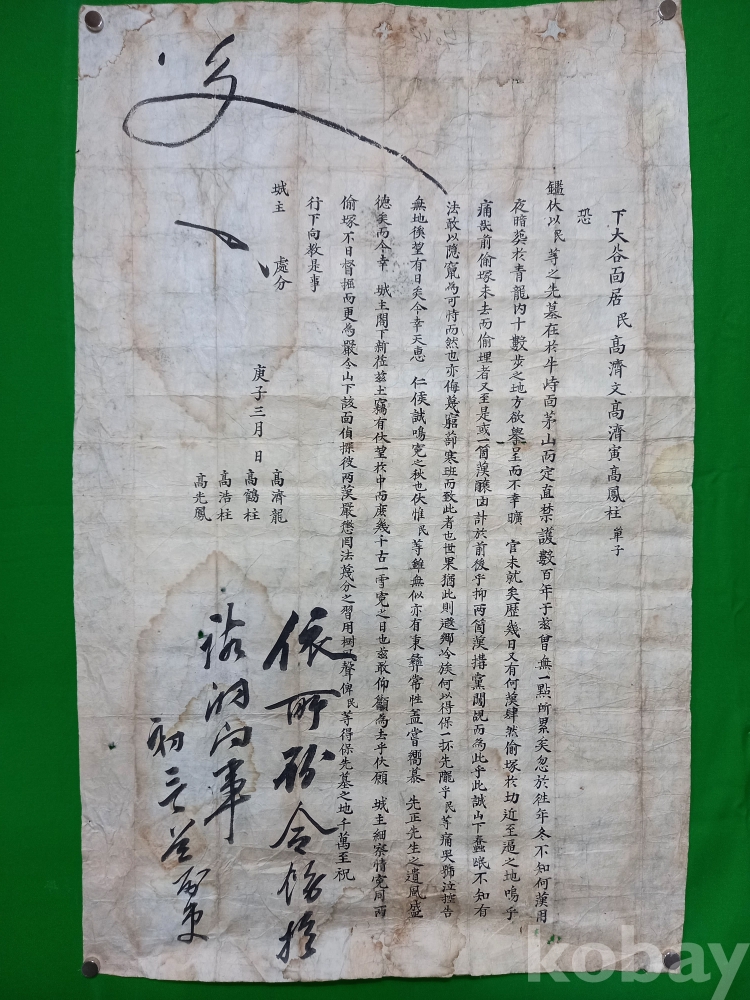 下大谷面居民高濟文高濟寅高鳳柱單子
恐
鑑伏以民等之先墓在於牛峙面茅山而定直禁護數百年于玆曾無一點所累矣忽於徃年冬不知何漢用
夜暗葬於青龍內十數步之地方欲擧呈而不幸曠 官未就矣歷幾日又有何漢肆然偷塚於切近至逼之地嗚乎
痛哉前偷塚未去而偷埋者又至是或一箇漢釀凶計於前後乎抑兩箇漢 黨 而為此乎此誠山下蠢氓不知有
法敢以隱竄為可恃而然也亦侮蔑窮蔀寒班而致此者也世果猶此則遐鄉冷族何以得保一抔先隴乎民等痛哭 泣控告
無地俟望有日矣今幸天惠 仁侯誠鳴寃之秋也伏惟民等雖無似亦有秉彛常性盖當嚮慕 先正先生之遺風盛
德矣而今幸 城主閤下新莅玆土竊有伏望於中而庶幾千古一雪寃之日也玆敢仰籲為去乎伏願 城主細察情寃同兩
偷塚不日督掘而更為嚴令山下該面偵探彼兩漢嚴懲罔法蔑分之習用樹風聲俾民等得保先墓之地千萬至祝
行下向敎是事
城主 處分
庚子三月 日
高濟龍
高鶴柱
高浩柱
高光鳳
依所 令
向事
初三
kobay